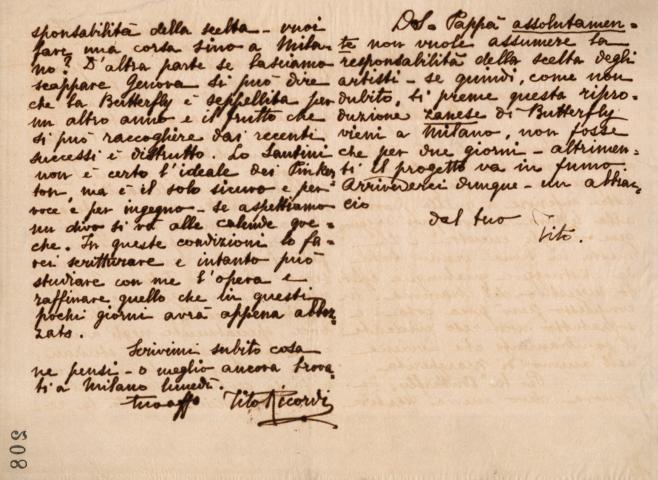 sponsabilità della scelta - vuoi
fare una corsa sino a Mila=
no? D'altra parte se lasciamo
scappare Genova si può dire
che la Butterfly è seppellita per
un altro anno e il frutto che
si può raccogliere dai recenti
successi è distrutto. Lo Santini
non è certo l'ideale dei Pinker
ton, ma è il solo sicuro e per
voce e per ingegno - se aspettiamo
un divo si va alle calende gre=
che. In queste condizioni lo fa=
rei scritturare e intanto può
studiare con me l'opera e
raffinare quello che in questi
pochi giorni avrà appena abboz=
zato.
Scrivimi subito cosa
ne pensi - o meglio ancora trova
ti a Milano lunedì.
tuo aff Tito Ricordi
D.S. Pappà assolutamen=
te non vuole assumere la
responsabilità della scelta degli
artisti - se quindi, come non
dubito, ti preme questa ripro=
duzione zanese di Butterfly
vieni a Milano, non fosse
che per due giorni - altrimen=
ti il progetto va in fumo.
Arrivederci dunque - un abbrac=
cio
dal tuo
Tito.
208